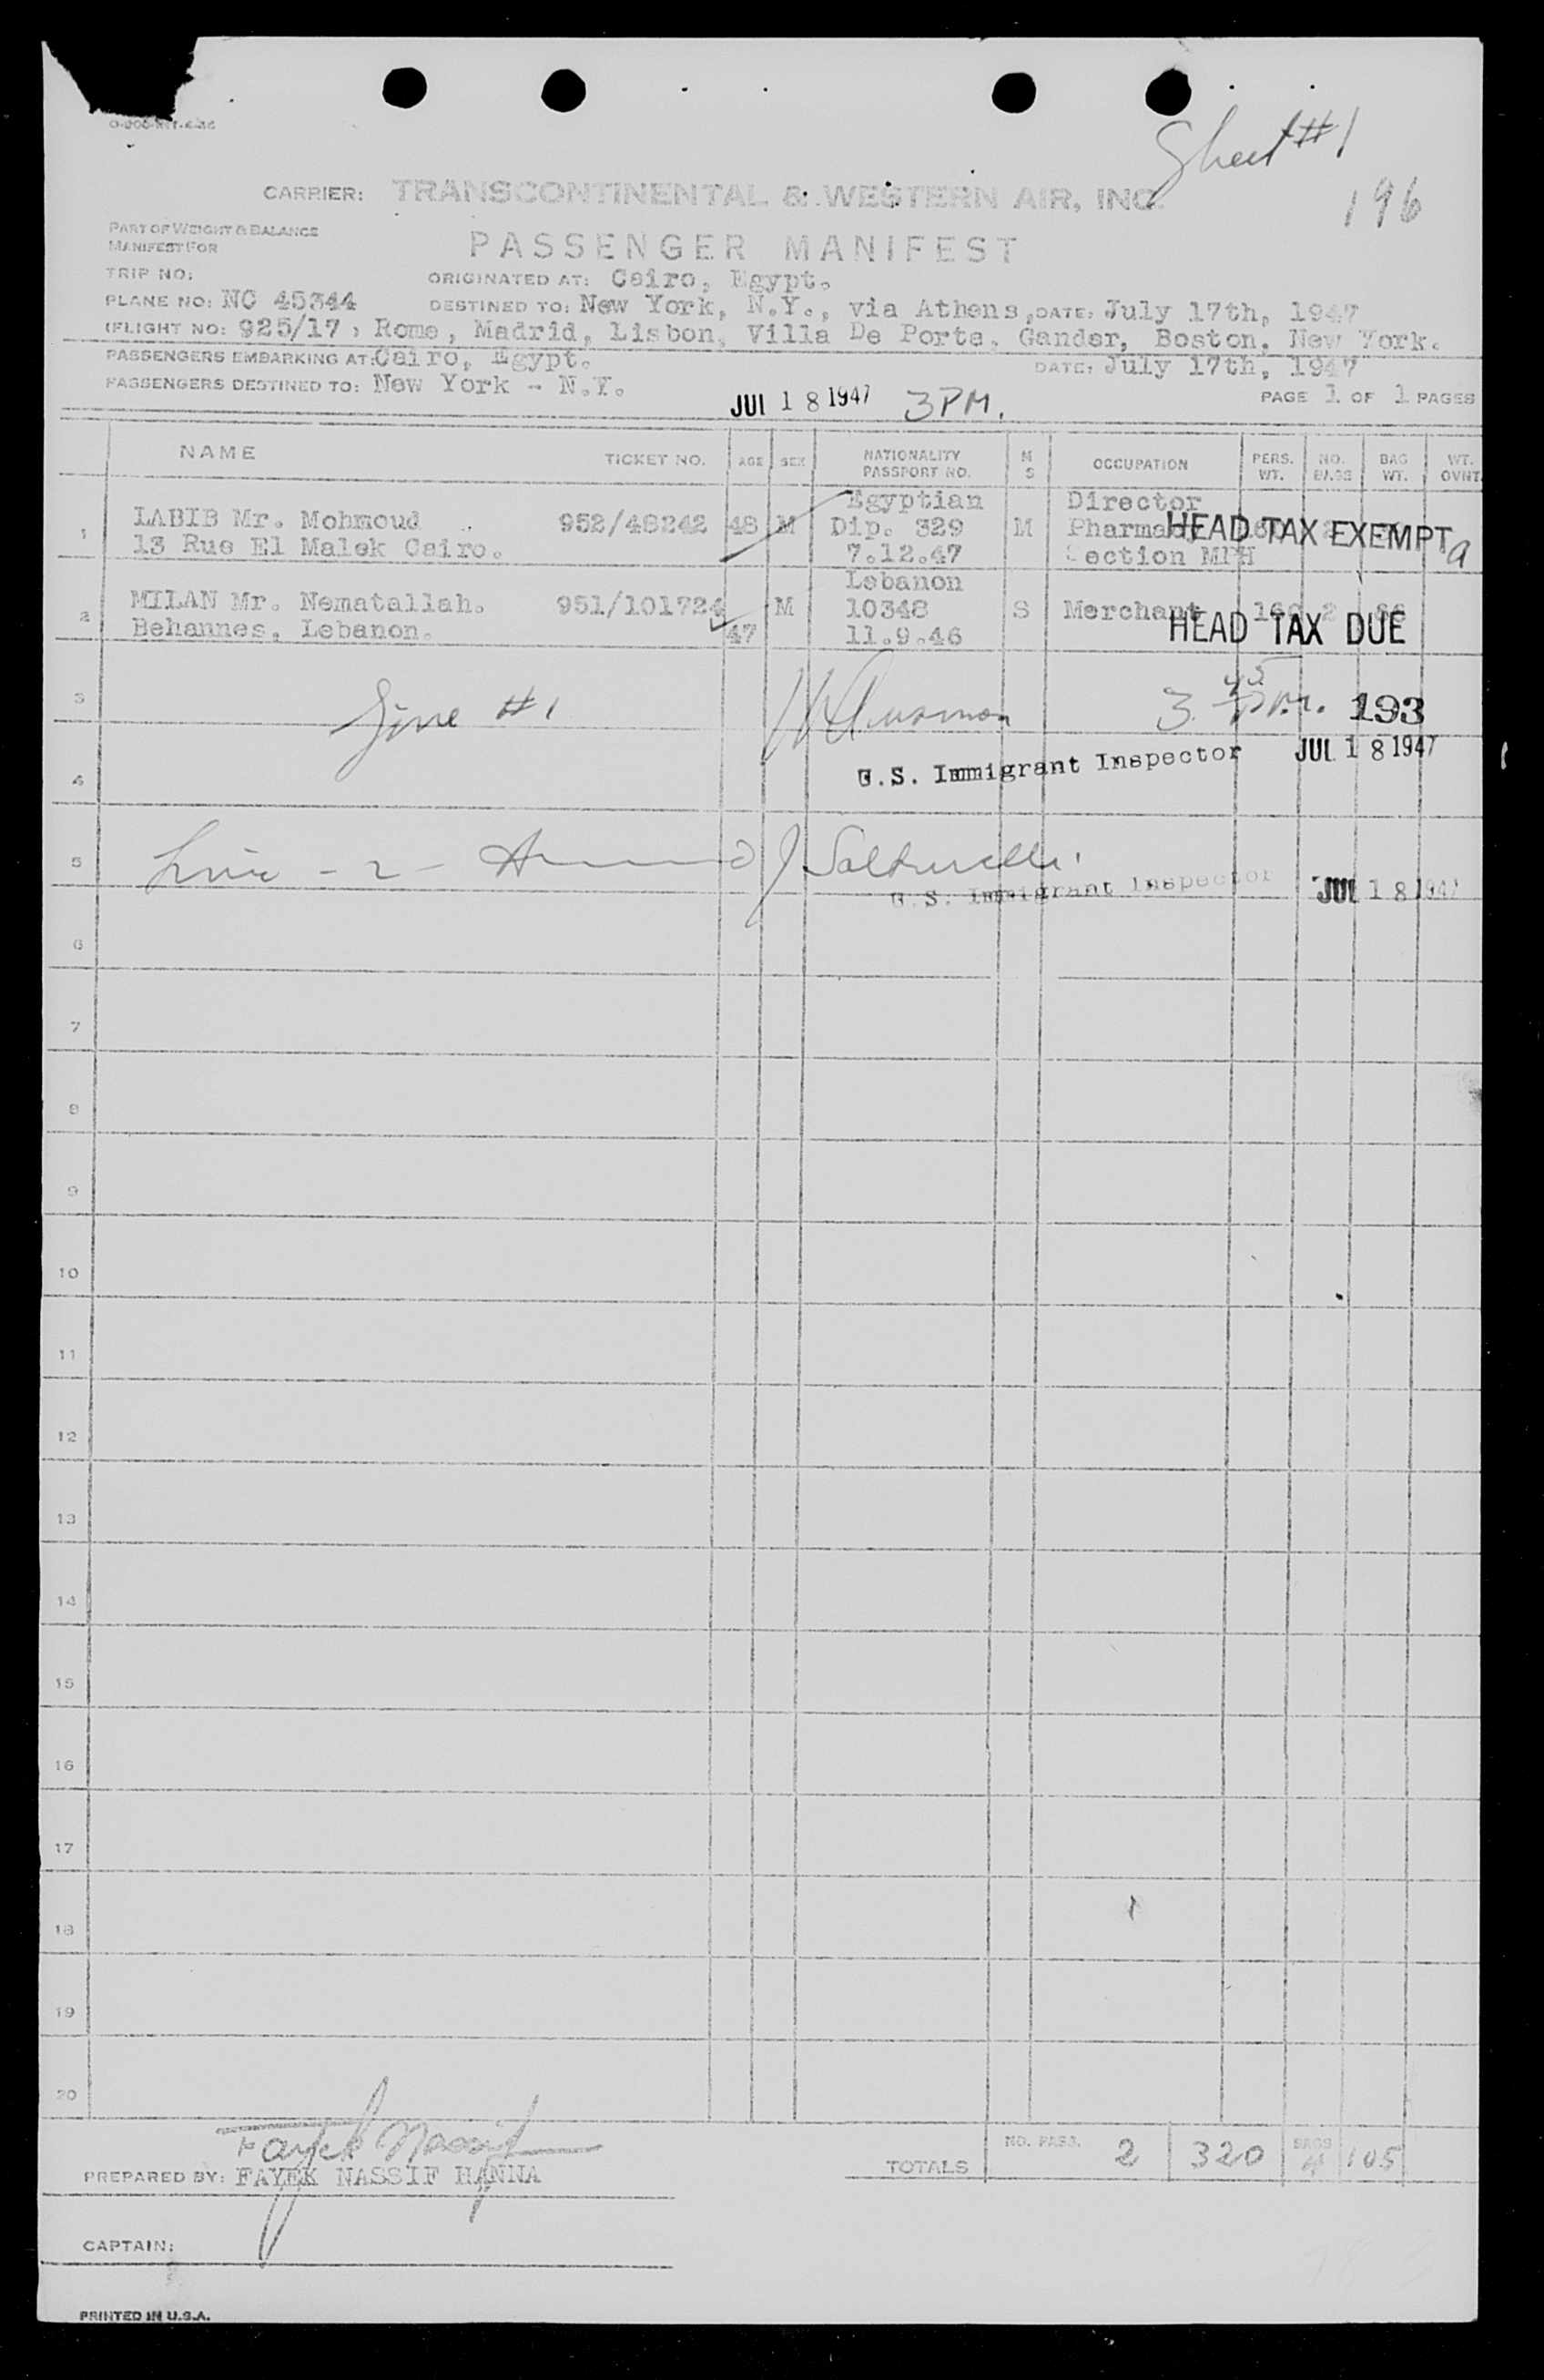 Sheet #1
196
CARRIER: TRANSCONTINENTAL & WESTERN AIR, INC.
PART OF WEIGHT & BALANCE
MANIFEST FOR
PASSENGER MANIFEST
TRIP NO:
ORIGINATED AT: Cairo, Egypt.
PLANE NO: NC 45344
DESTINED TO: New York, N.Y., via Athens, DATE: July 17th, 1947
FLIGHT NO: 925/17, Rome, Madrid, Lisbon, Villa De Porte, Gander, Boston, New York.
PASSENGERS EMBARKING AT: Cairo, Egypt.
DATE: July 17th, 1947
PASSENGERS DESTINED TO: New York - N.Y.
JUL 18 1947 3PM.
PAGE 1 OF 1 PAGES
NAME TICKET NO. AGE SEX NATIONALITY PASSPORT NO. M S OCCUPATION PERS. WT. NO. BAGS BAG WT. WT. OVNT.
Egyptian Director
1 LABIB Mr. Mohmoud 952/48242 48 M Dip. 329 M Pharmacy HEAD TAX EXEMPT a
13 Rue El Malek Cairo. 7.12.47 Section MPH
Lebanon
2 MILAN Mr. Nematallah. 951/101724 M 10348 S Merchant 160 2
Behannes, Lebanon. 47 11.9.46 HEAD TAX DUE
3 Line #1 3.45 P.M. 193
U.S. Immigrant Inspector JUL 18 1947
4
5 Line - 2 -
U.S. Immigrant Inspector JUL 18 1947
6
7
8
9
10
11
12
13
14
15
16
17
18
19
20
Fayek Nassif
PREPARED BY: FAYEK NASSIF HANNA
TOTALS NO. PASS. 2 320 BAGS 4 105
CAPTAIN:
PRINTED IN U.S.A.